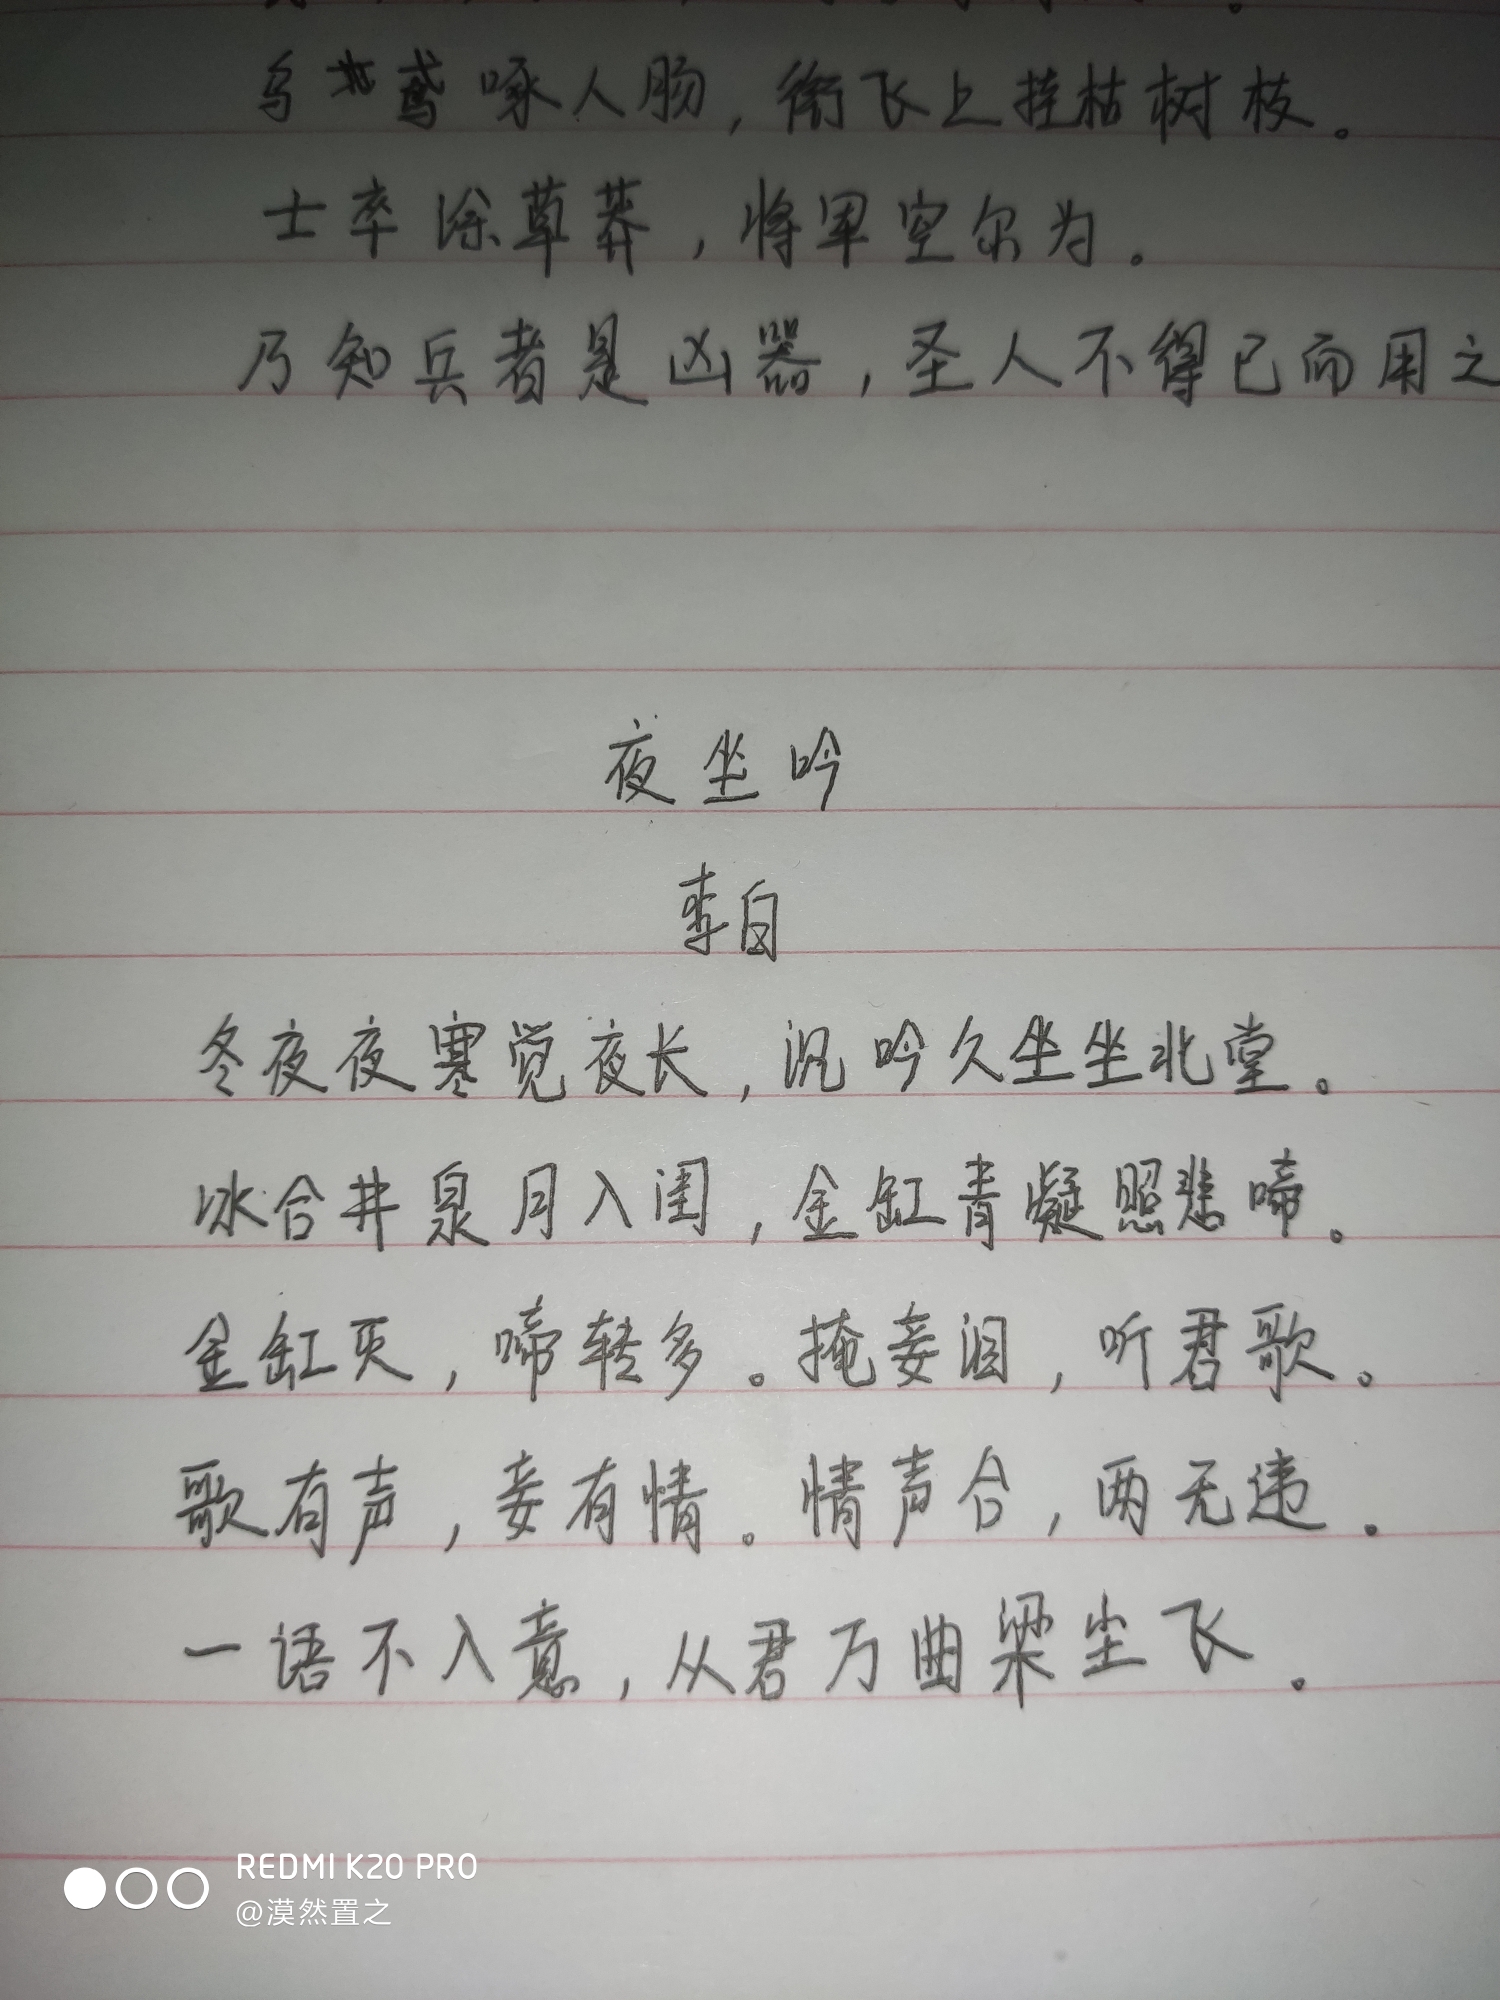 乌鸢啄人肠，衔飞上挂枯树枝。
士卒涂草莽，将军空尔为。
乃知兵者是凶器，圣人不得已而用之
夜坐吟
李白
冬夜夜寒觉夜长，沉吟久坐坐北堂。
冰合井泉月入闺，金缸青凝照悲啼。
金缸灭，啼转多。掩妾泪，听君歌。
歌有声，妾有情。情声合，两无违。
一语不入意，从君万曲梁尘飞。
REDMI K20 PRO
@漠然置之